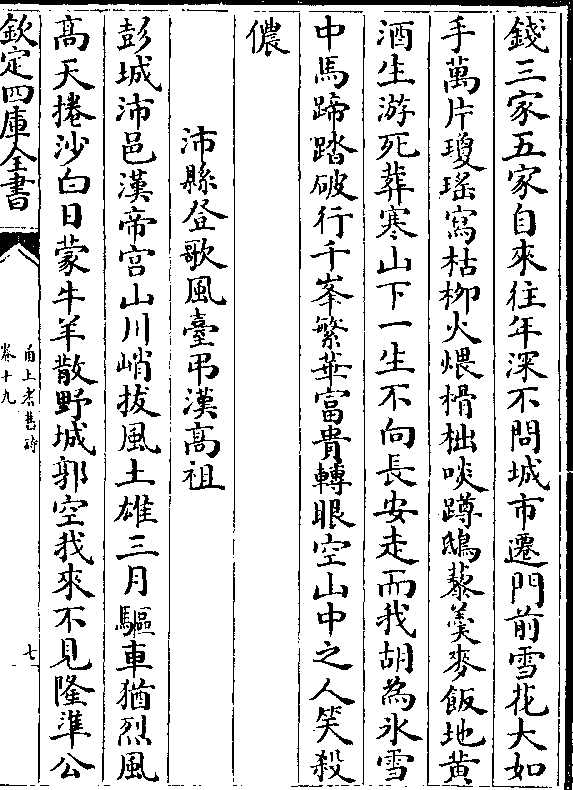 錢三家五家自來往年深不問城市遷門前雪花大如
手萬片瓊瑤寫枯柳火煨榾柮啖蹲鴟藜羮麥飯地黄
酒生游死葬寒山下一生不向長安走而我胡為氷雪
中馬蹄踏破行千峯繁華富貴轉眼空山中之人笑殺
儂
沛縣登歌風臺弔漢高祖
彭城沛邑漢帝宫山川峭拔風土雄三月驅車猶烈風
高天捲沙白日蒙牛羊散野城郭空我來不見隆準公
欽定四庫全書
甬上耆舊詩
卷十九
七